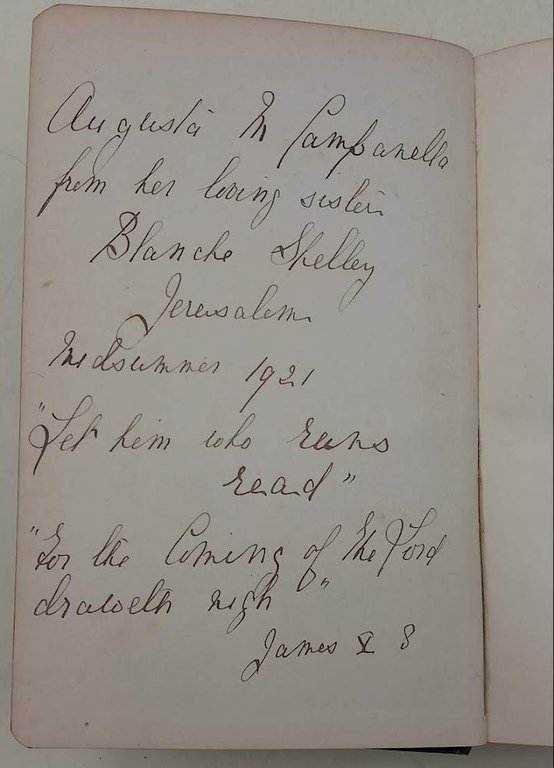 Augusta M Campanella
from her loving sister
Blanche Shelley
Jerusalem
Midsummer 1921
"Let him who runs
read"
"For the Coming of the Lord
draweth nigh"
James V 8